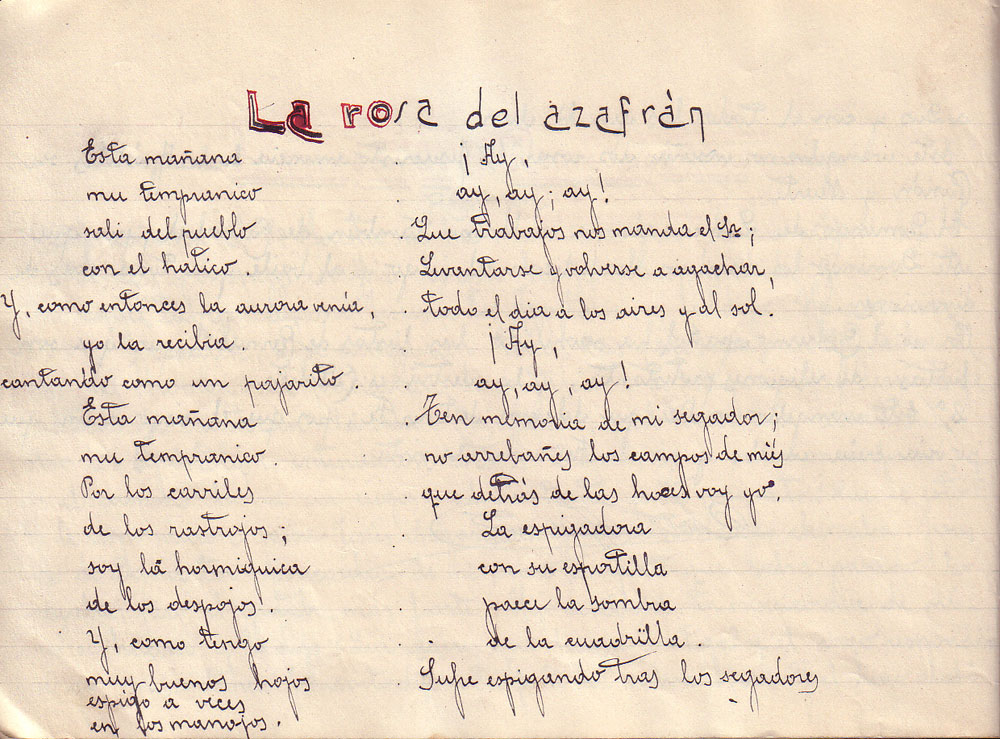 La rosa del azafrán
Esta mañana
mu tempranico
sali del pueblo
con el hatico
Y, como entonces la aurora venía,
yo la recibia.
cantando como un pajarito.
Esta mañana
mu tempranico.
Por los carriles
de los rastrojos;
soy la hormiguica
de los despojos.
Y, como tengo
muy buenos hojos
espigo a veces
en los manojos.
¡Ay,
ay, ay; ay!
Que trabajos nos manda el Sr;
Levantarse y volverse a agachar,
todo el dia a los aires y al sol.
¡Ay,
ay, ay, ay!
Ten memoria de mi segador;
no arrebañes los campos de miés
que detrás de las hoces voy yo.
La espigadora
con su esportilla
paece la sombra
de la cuadrilla.
Sufre espigando tras los segadores